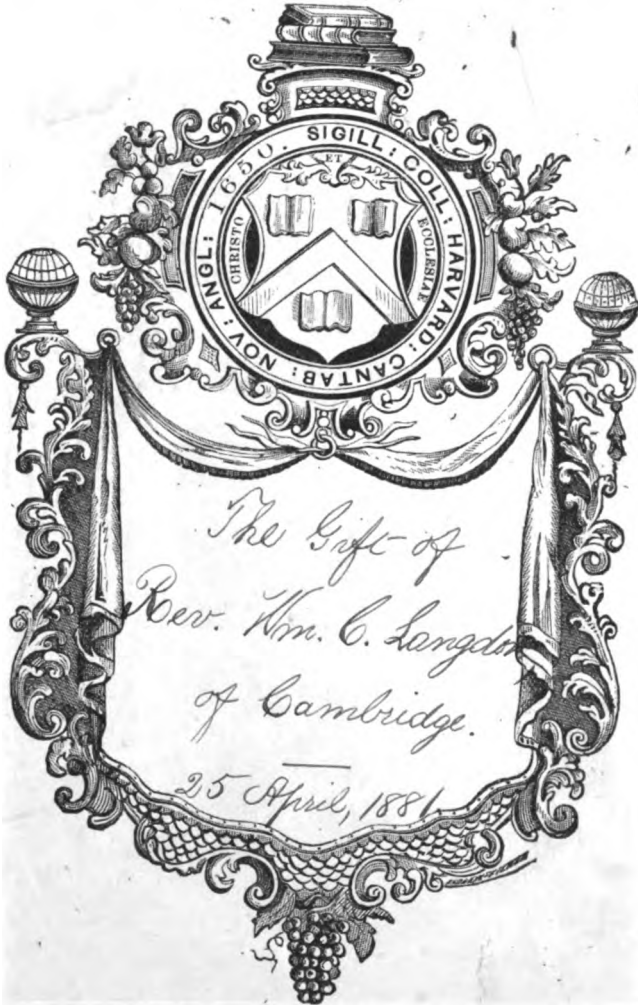 SIGILL: COLL: HARVARD: CANTAB: NOV: ANGL: 1650.
CHRISTO
ET
ECCLESIAE
The Gift of
Rev. Wm. C. Langdon
of Cambridge.
25 April, 1881.